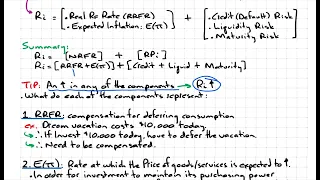 Ri = [.Real Rf Rate (RRFR) .Expected Inflation: E(π)] + [.Credit (Default) Risk .Liquidity Risk .Maturity Risk]
Summary:
Ri = [NRFR] + [RPi]
Ri = [RRFR + E(π)] + [Credit + Liquid + Maturity]
TIP: An ↑ in any of the components → Ri ↑
.What do each of the components represent:
1. RRFR: compensation for deferring consumption
ex. Dream vacation costs $10,000 today.
↳ ∴ If Invest $10,000 today, have to defer the vacation.
↳ ∴ Need to be compensated.
2. E(π): Rate at which the Price of goods/services is expected to ↑.
.In order for investment to maintain its purchasing power